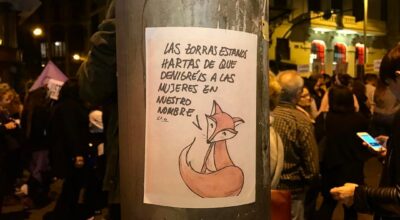 LAS ZORRAS ESTAMOS
HARTAS DE QUE
DENIGRÉIS A LAS
MUJERES EN
NUESTRO
NOMBRE